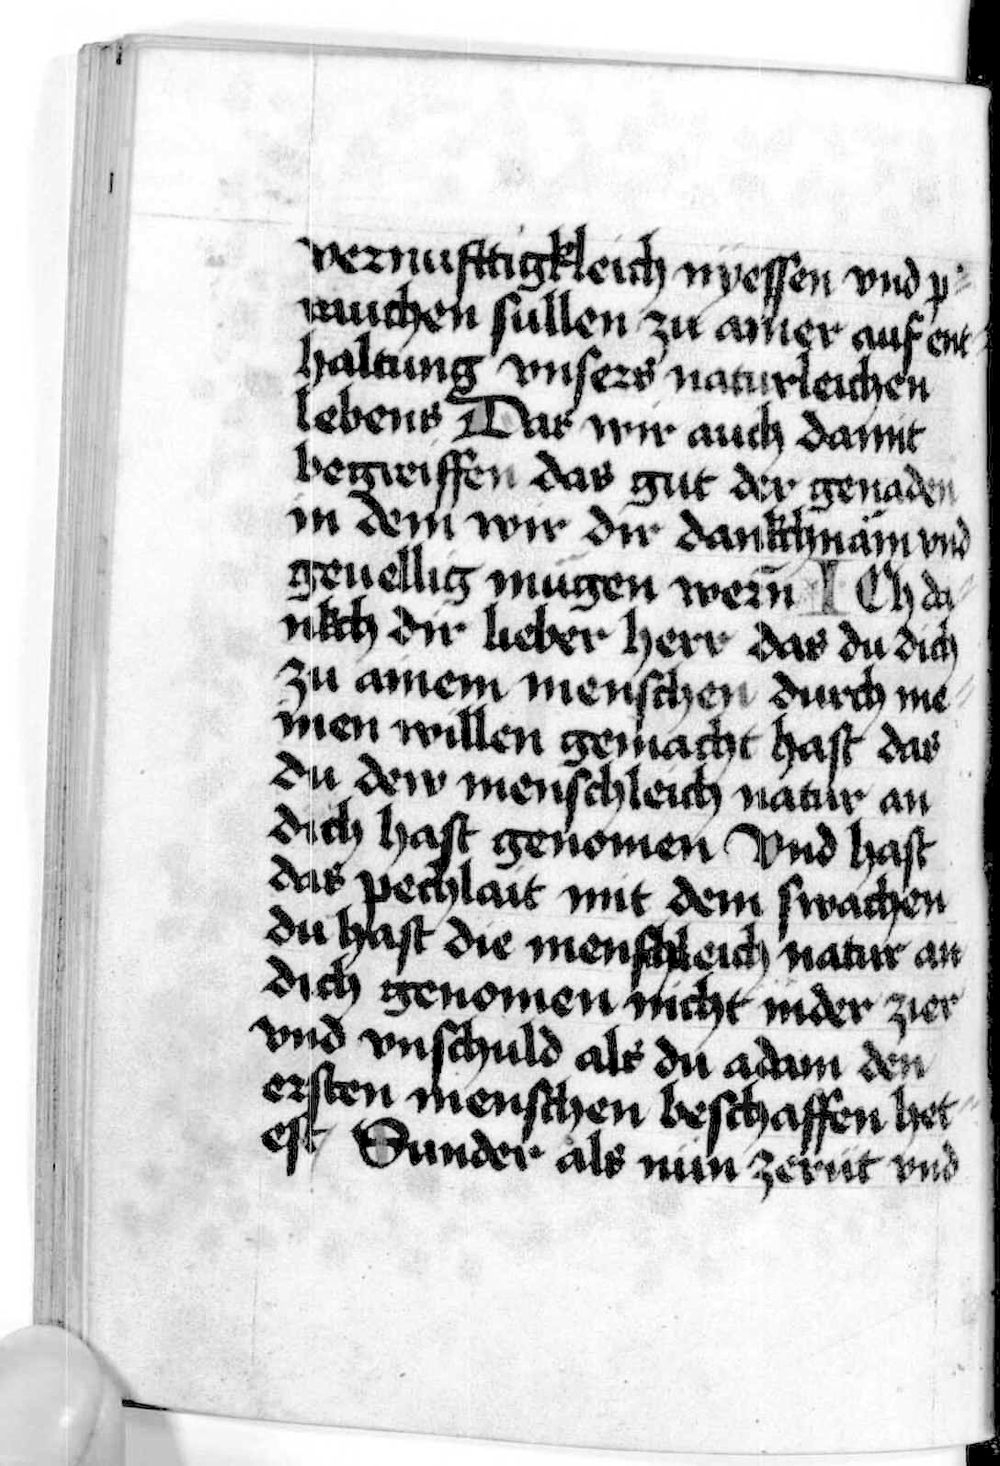 vernufftigkleich nyessen vnd p-
rauchen sullen zu ainer auf ent-
haltung vnsers naturleichen
lebens Das wir auch damit
begreiffen das gut der genaden
in dem wir dir dankchnäm vnd
geuellig mügen wern̄ ICh da-
nkch dir lieber herr das du dich
zu ainem menschen durch me-
inen willen gemacht hast das
du dew menschleich natur an
dich hast genomen Vnd hast
das pechlait mit dem swachen
du hast die menschleich natur an
dich genomen nicht inder zier
vnd vnschuld als du adam den
ersten menschen beschaffen het-
est Sunder als nün zerüt vnd